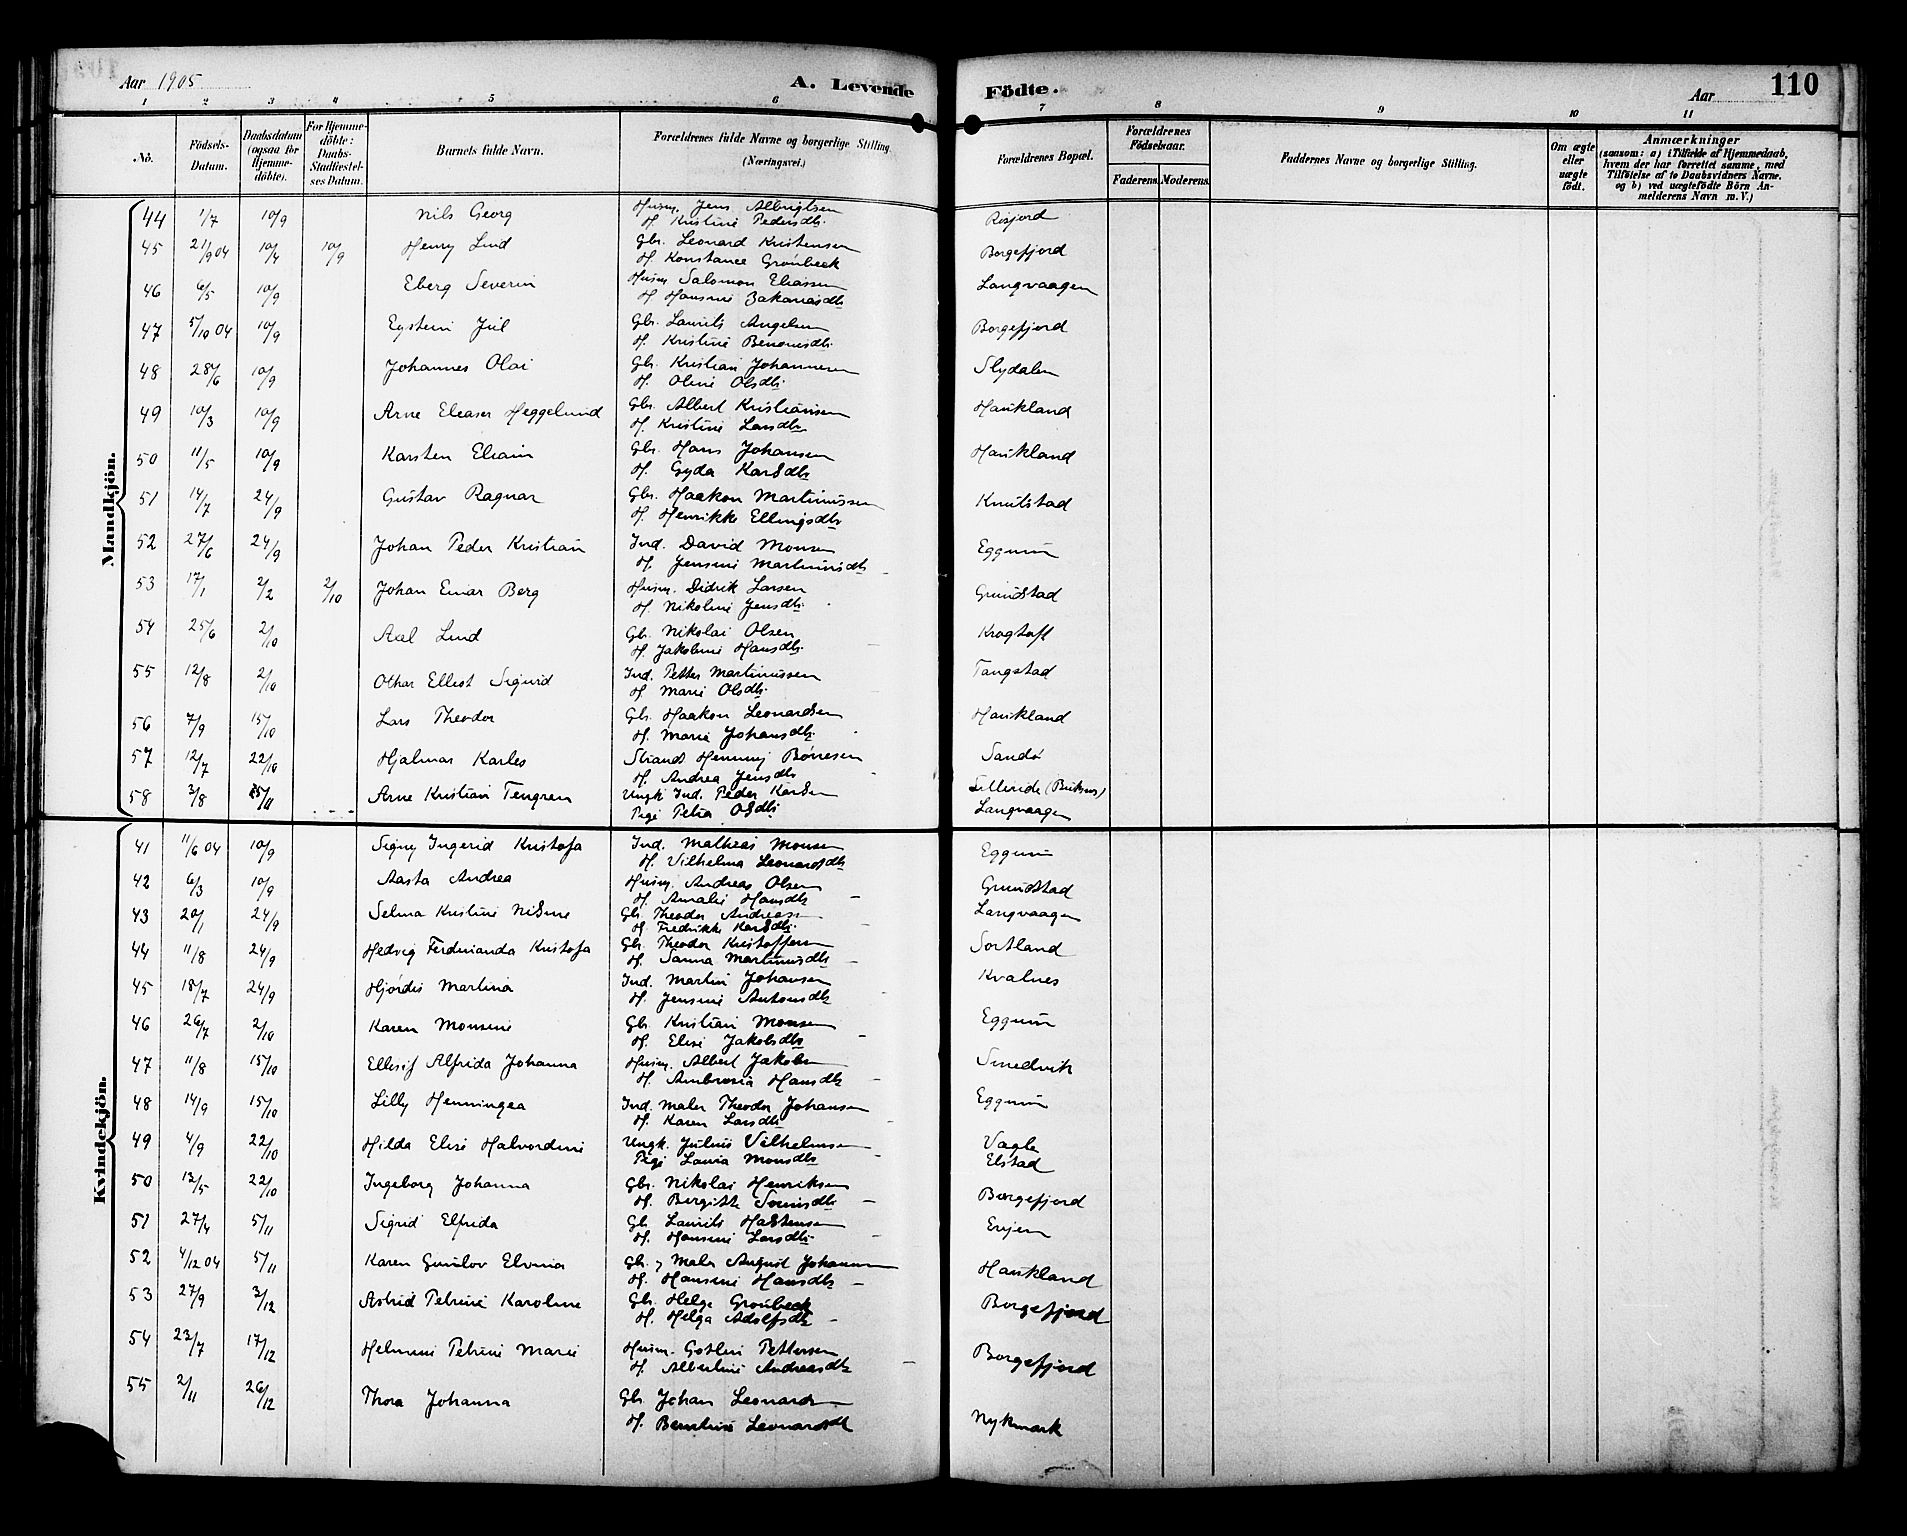 Aar 1905
A. Levende Födte.
Aar
110
1 2 3 4 5 6 7 8 9 10 11
No.
Födsels-Datum.
Daabsdatum (ogsaa for Hjemme-döbte).
For Hjemme-döbte: Daabs-Stadfæstel-ses Datum.
Barnets fulde Navn.
Forældrenes fulde Navne og borgerlige Stilling. (Næringsvei.)
Forældrenes Bopæl.
Forældrenes Födselsaar.
Faderens. Moderens.
Faddernes Navne og borgerlige Stilling.
Om ægte eller uægte födt.
Anmærkninger
(saasom: a) i Tilfælde af Hjemmedaab, hvem der har forrettet samme, med Tilföielse af to Daabsvidners Navne, og b) ved uægtefödte Börn An-melderens Navn m.V.)
Mandkjön.
44 1/7 10/9 Nils Georg Husm. Jens Albrigtsen
H. Kristine Pedersdtr. Risjord
45 21/9 04 10/4 10/9 Henry Lind Gbr. Leonard Kristensen
H. Konstance Grønbeck Borgefjord
46 6/5 10/9 Eberg Severin Husm. Salomon Eliassen
H. Hansine Zakariasdtr Langvaagen
47 5/10 04 10/9 Eystein Jul Gbr. Laurits Angelsen
H. Kristine Benonisdtr. Borgefjord
48 28/6 10/9 Johannes Olai Gbr. Kristian Johannesen
H. Oline Olsdtr. Slydalen
49 10/3 10/9 Arne Eleaser Heggelund Gbr. Albert Kristiansen
H. Kristine Larsdtr Haukland
50 11/5 10/9 Karsten Eliam Gbr. Hans Johansen
H. Gyda Karlsdtr Haukland
51 14/7 24/9 Gustav Ragnar Gbr. Haakon Martinussen
H. Henrikke Ellingsdtr Knutstad
52 27/6 24/9 Johan Peder Kristian Ind. David Monsen
H. Jensine Martinusdtr Eggum
53 17/1 2/2 2/10 Johan Einar Berg Husm. Didrik Larsen
H. Nikoline Jensdtr. Grundstad
54 25/6 2/10 Axel Lind Gbr. Nikolai Olsen
H. Jakobine Hansdtr. Kragtoft
55 12/8 2/10 Othar Ellest Sigurd Ind. Petter Martinussen
H. Marie Olsdtr. Tangstad
56 7/9 15/10 Lars Theodor Gbr. Haakon Leonardsen
H. Marie Johansdtr. Haukland
57 12/7 22/10 Hjalmar Karles Strands. Henning Børresen
H. Andrea Jensdtr Sandø
58 3/8 5/11 Arne Kristian Tengren Ungk. Ind. Peder Karlsen
Pige Petra Olsdtr. Langvaagen
Kvindekjön.
41 11/6 04 10/9 Signy Ingerid Kristofa Ind. Mathias Monsen
H. Vilhelma Leonardsdtr Eggum
42 6/3 10/9 Aasta Andrea Husm. Andreas Olsen
H. Amalie Hansdtr Grundstad
43 20/1 24/9 Selma Kristine Nilsine Gb. Theodor Andreassen
H. Fredrikke Karlsdtr. Langvaagen
44 11/8 24/9 Hedvig Ferdinanda Kristofa Gb. Theodor Kristoffersen
H. Sanna Martinusdtr Sortland
45 18/7 24/9 Hjørdis Martina Ind. Martin Johansen
H. Jensine Antonsdtr Kvalnes
46 26/7 2/10 Karen Monsine Gb. Kristian Monsen
H. Elise Jakobsdtr Eggum
47 11/8 15/10 Ellisif Alfrida Johanna Husm. Albert Jakobsen
H. Ambrosia Hansdtr Smedvik
48 14/9 15/10 Lilly Henningea Ind. Maler Theodor Johansen
H. Karen Larsdtr Eggum
49 4/9 22/10 Hilda Elise Halvordine Ungk. Julius Vilhelmsen
Pige Laura Monsdtr Vagle
Elstad
50 12/5 22/10 Ingeborg Johanna Gbr. Nikolai Henriksen
H. Bergitte Simsdtr Borgefjord
51 27/4 5/11 Sigrid Elfrida Gb. Laurits Halstensen
H. Hansine Larsdtr. Eryen
52 4/12 04 5/11 Karen Gunlov Elvina Gb. og Maler August Johansen
H. Hansine Hansdtr Haukland
53 27/9 3/12 Astrid Petrine Karoline Gb. Helge Grønbeck
H. Helga Adolfsdtr Borgefjord
54 23/7 17/12 Helmine Petrine Marie Husm. Gotlin Pettersen
H. Albertine Andreasdtr Borgefjord
55 2/11 26/12 Thora Johanna Gb. Johan Leonardsen
H. Berntine Leonardsdtr Nykmark